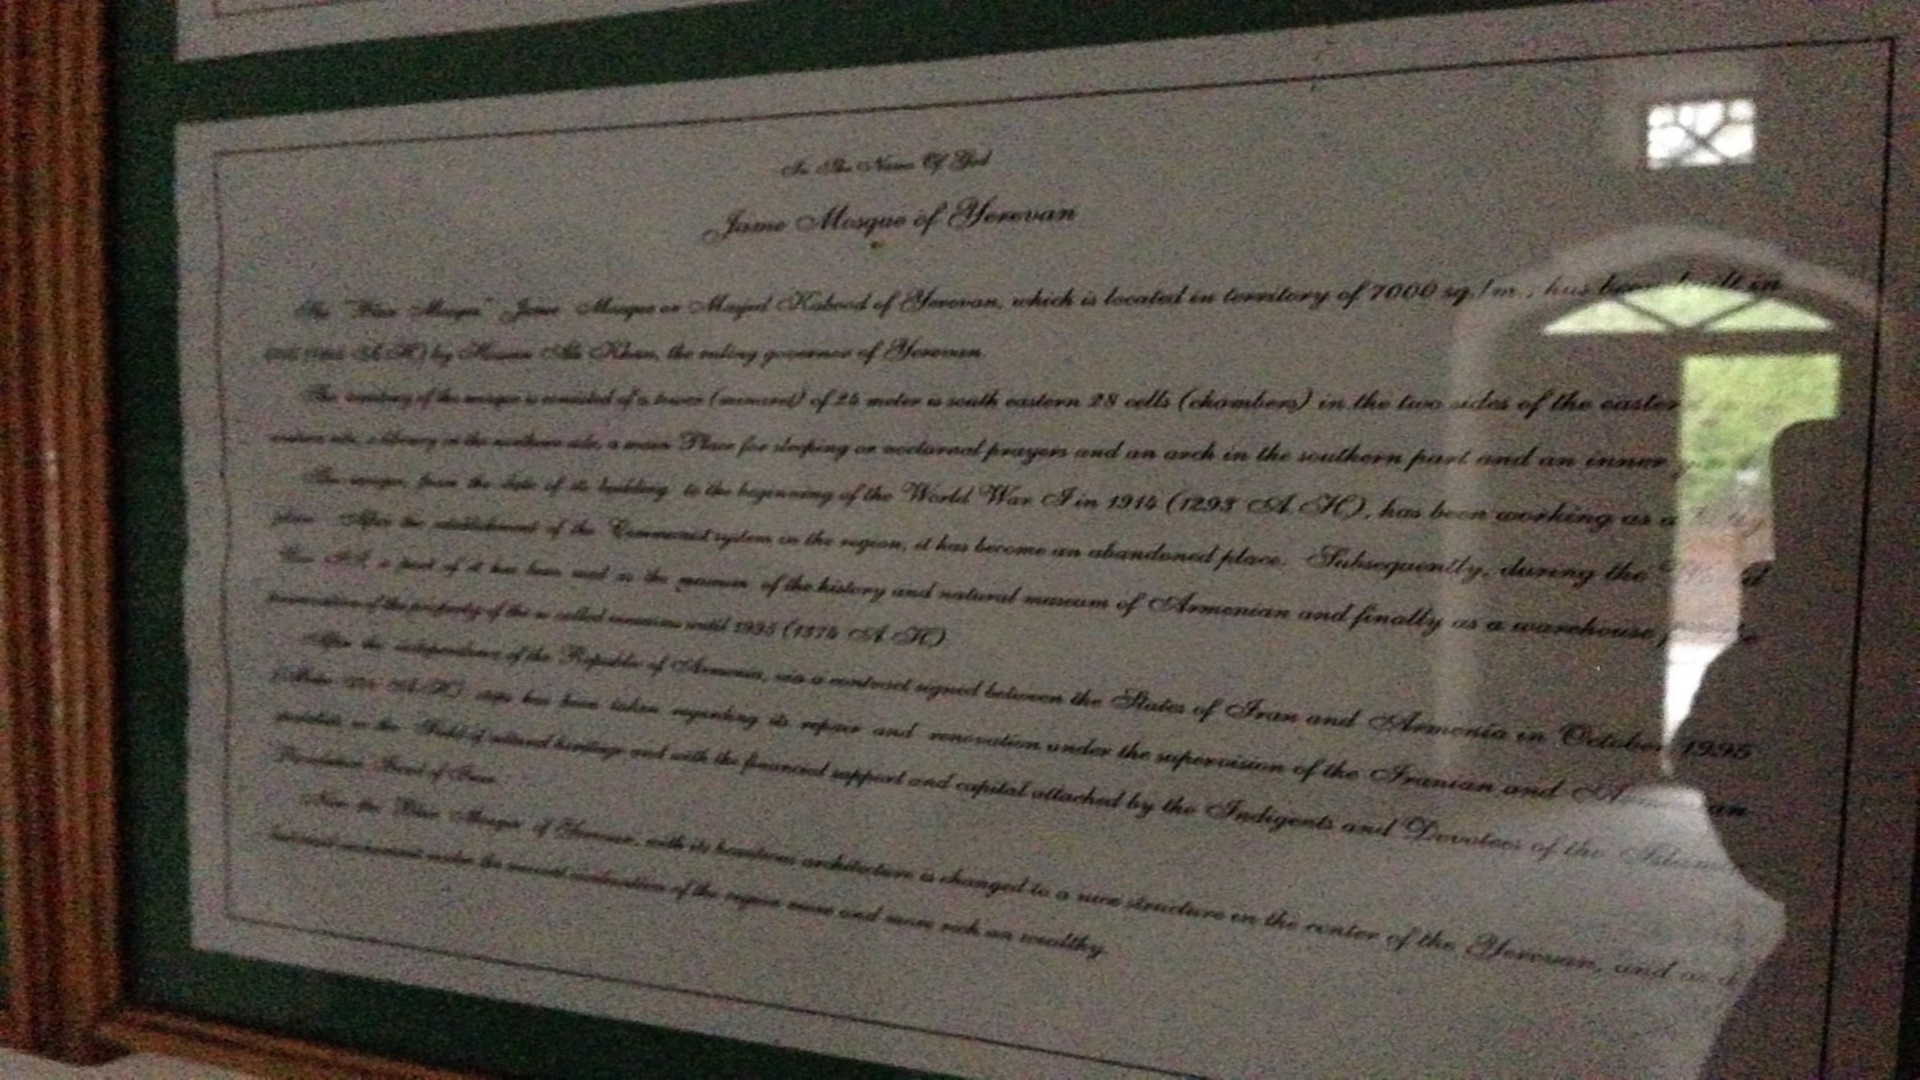 In The Name Of God
Jame Mosque of Yerevan
The "Blue Mosque" Jame Mosque or Masjed Kabood of Yerevan, which is located in territory of 7000 sq./m., has been built in
A.H) by Hossein Ali Khan, the ruling governor of Yerevan.
The territory of the mosque is consisted of a tower (minaret) of 24 meter is south eastern 28 cells (chambers) in the two sides of the eastern
western side, a library in the northern side, a main Place for sleeping or nocturnal prayers and an arch in the southern part and an inner
The mosque, from the date of its building to the beginning of the World War I in 1914 (1293 A.H), has been working as a
place. After the establishment of the Communist system in the region, it has become an abandoned place. Subsequently, during the World
War II, a part of it has been used as the museum of the history and natural museum of Armenian and finally as a warehouse
preservation of the property of the so called museums until 1995 (1374 A.H)
After the independence of the Republic of Armenia, via a contract signed between the States of Iran and Armenia in October 1995
A.H), steps has been taken regarding its repair and renovation under the supervision of the Iranian and
in the Field of cultural heritage and with the financial support and capital attached by the Indigents and Devotees of the Islamic
Foundation Board of Iran.
Now the Blue Mosque of Yerevan, with its beauteous architecture is changed to a new structure in the center of the Yerevan, and as a
historical monument under the of the region more and more rich an wealthy.